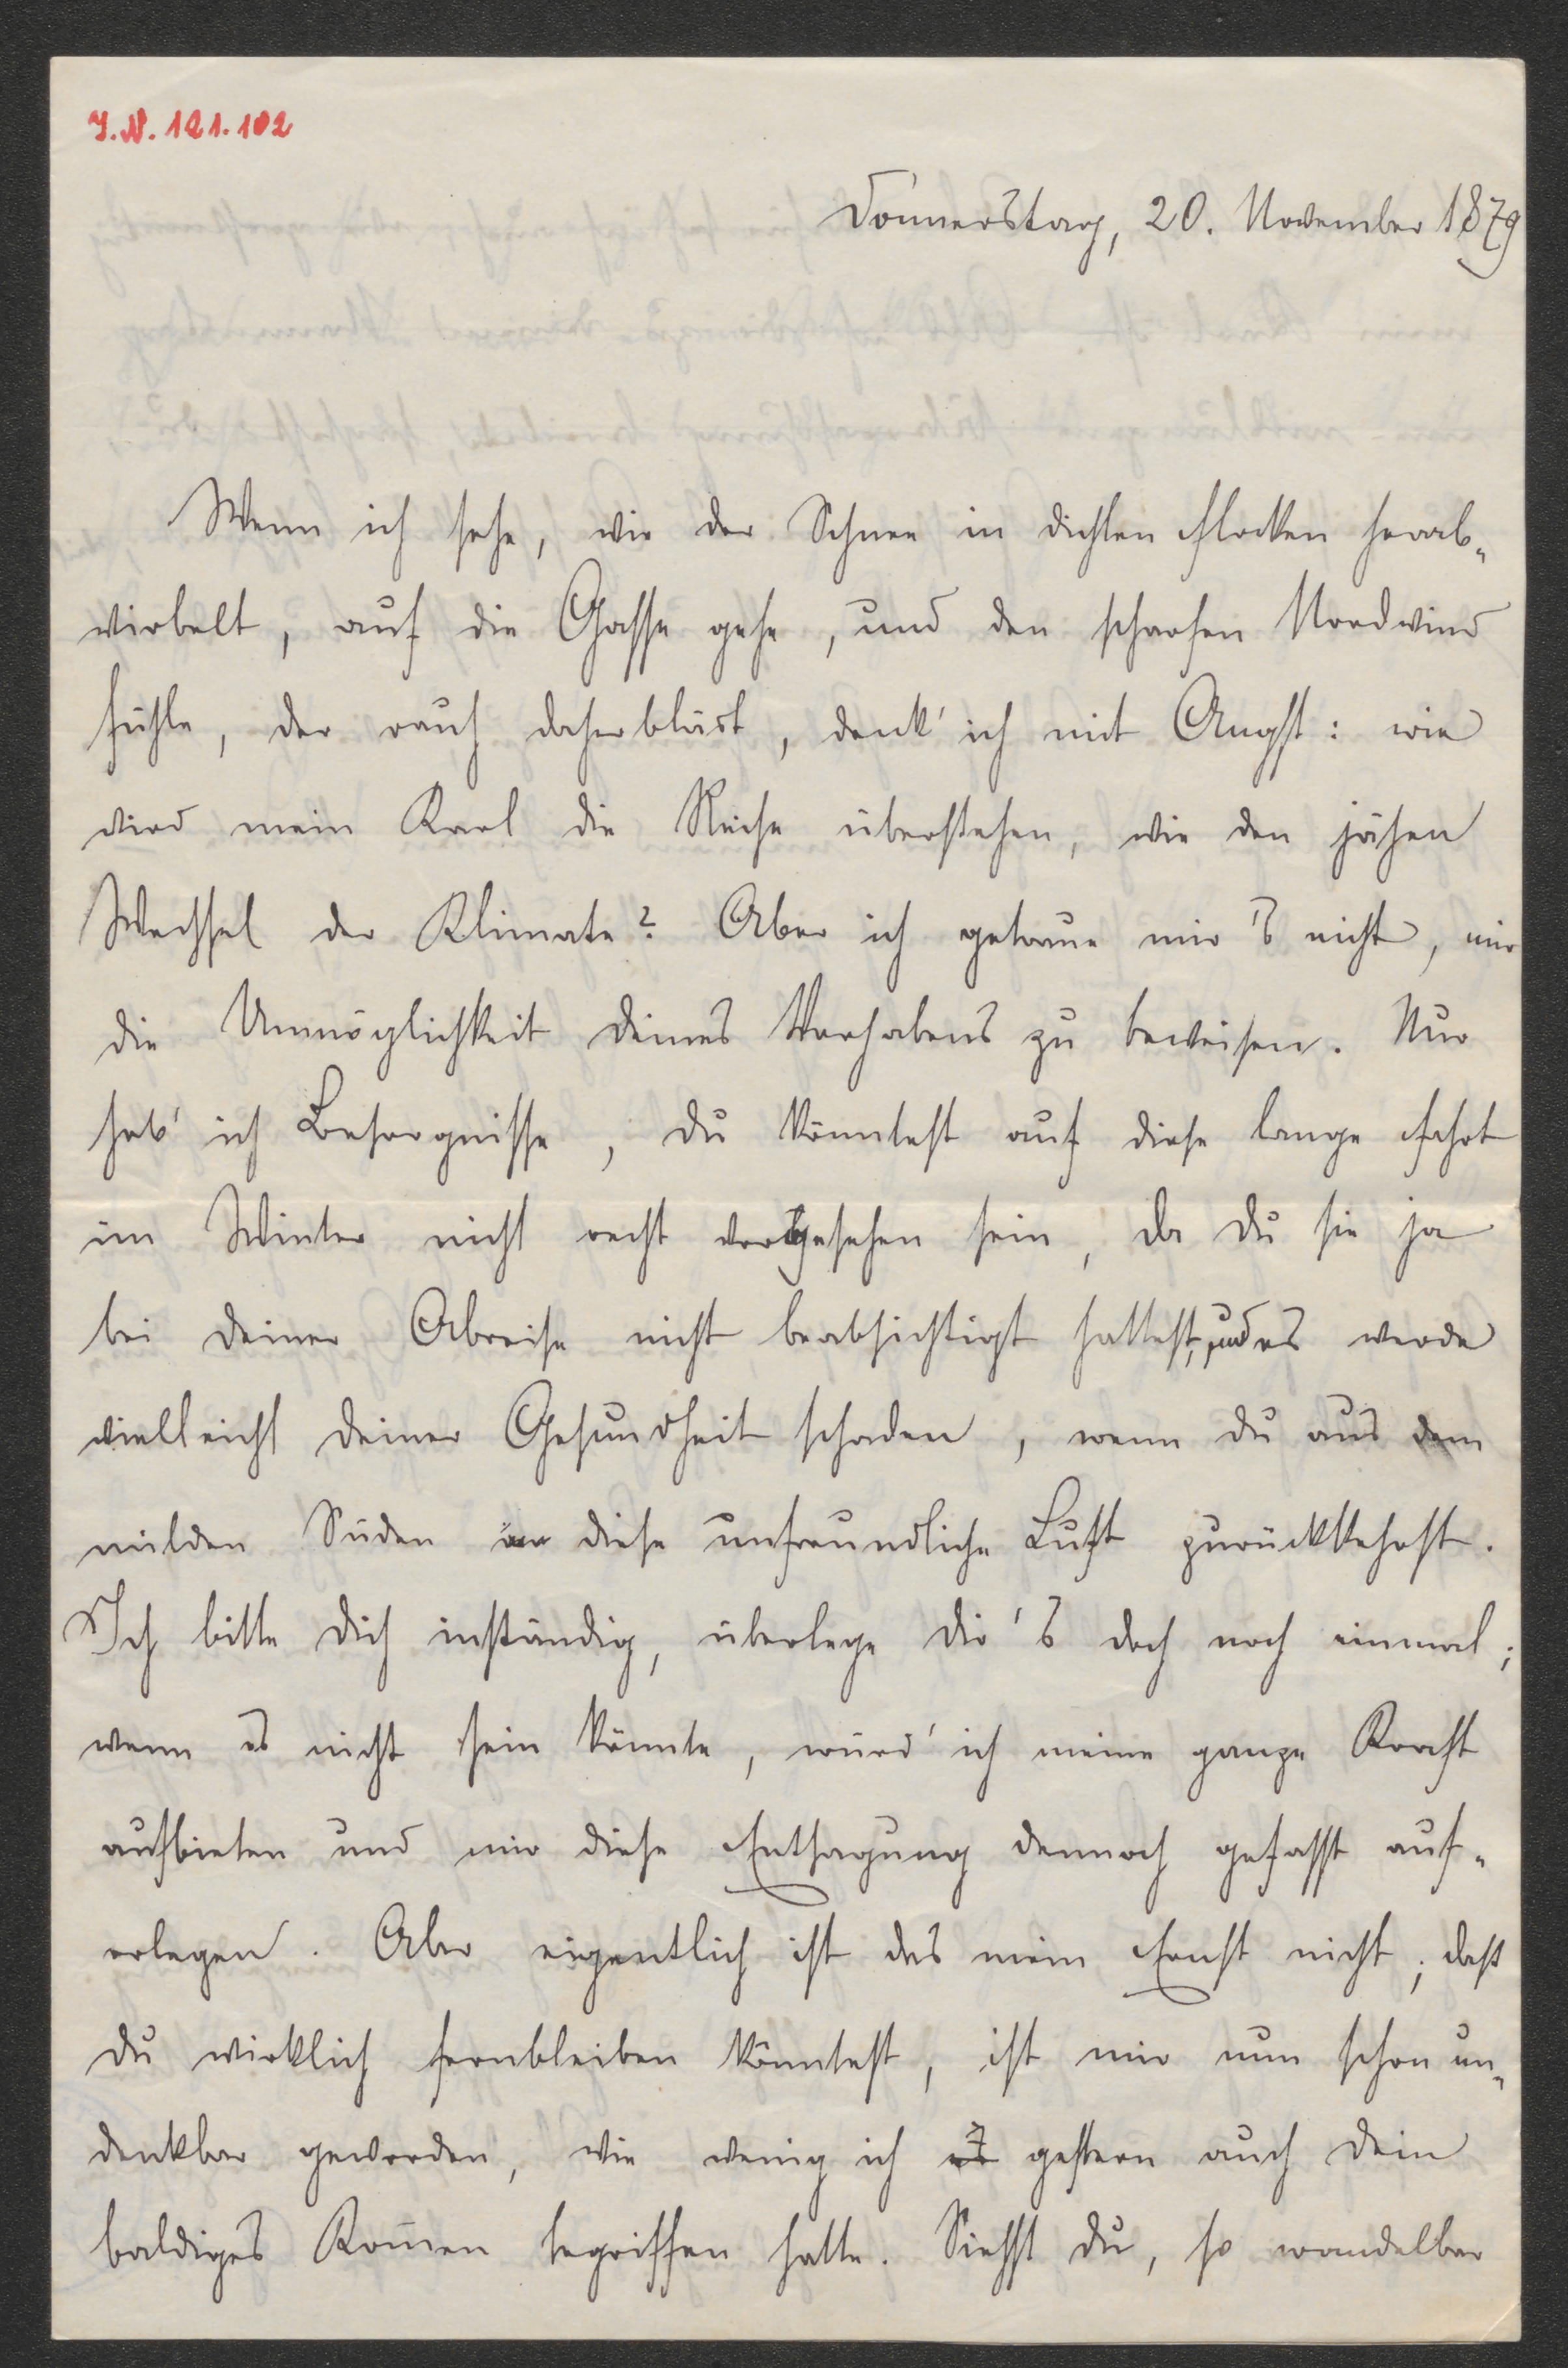 I.N. 121.102
Donnerstag, 20. November 1879
Wenn ich sehe, wie der Schnee in dichten Flocken herab-
wirbelt, auf die Gasse gehe, und den scharfen Nordwind
fühle, der rauh daherbläst, denk' ich mit Angst: wie
wird mein Karl die Reise überstehen, wie den jähen
Wechsel der Klimate? Aber ich getraue mir's nicht, mir
die Unmöglichkeit deines Vorhabens zu beweisen. Nur
hab' ich Besorgnisse, du könntest auf diese lange Fahrt
im Winter nicht recht vorgesehen sein, da du sie ja
bei deiner Abreise nicht beabsichtigt hattest, und es werde
vielleicht deiner Gesundheit schaden, wenn du aus dem
milden Süden in diese unfreundliche Luft zurückkehrst.
Ich bitte dich inständig, überlege dir's doch noch einmal;
wenn es nicht sein könnte, würd' ich meine ganze Kraft
aufbieten und mir diese Entsagung dennoch gefasst auf-
erlegen. Aber eigentlich ist das mein Ernst nicht; daß
du wirklich fernbleiben könntest, ist mir nun schon un-
denkbar geworden, wie wenig ich es gestern auch dein
baldiges Kom̄en begriffen hatte. Siehst du, so wandelbar